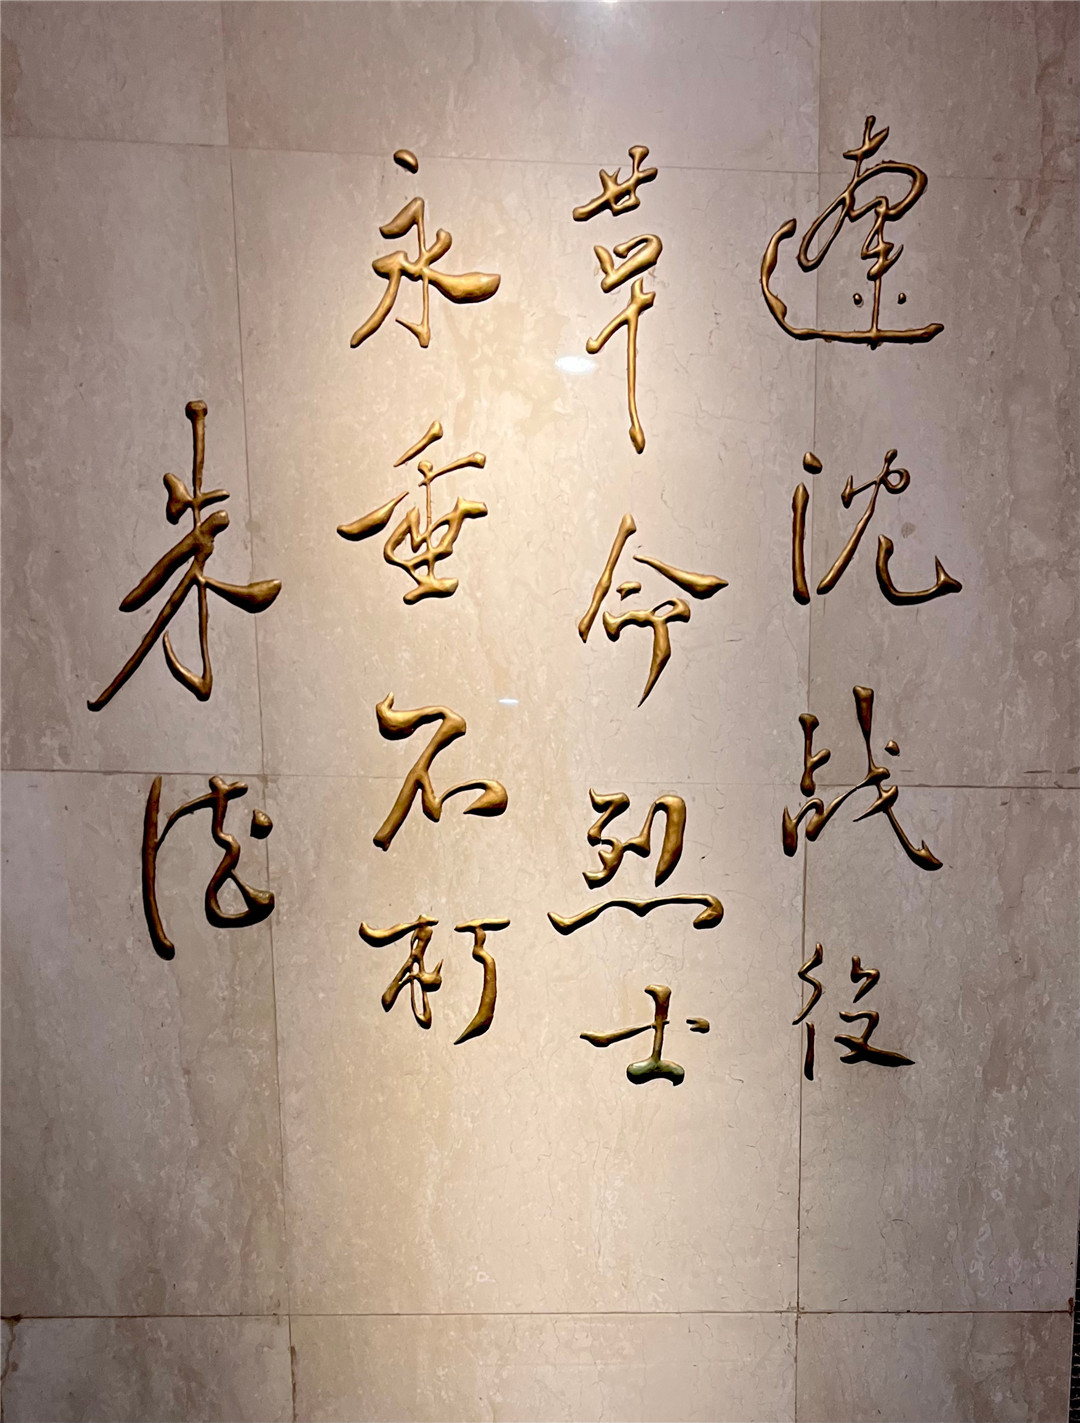 遼沈战役
革命烈士
永垂不朽
朱德